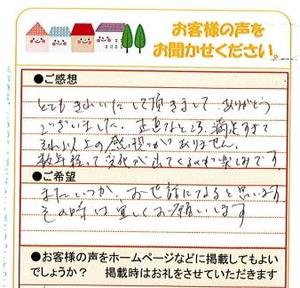 お客様の声を
お聞かせください。
●ご感想
とてもきれいにして頂きまして ありがとう
ございました。正直なところ、満足すぎて
それ以上の感想がありません。
数年経って変化が出てくるのが楽しみです
●ご希望
またいつか、お世話になると思います
その時は宜しくお願いします
●お客様の声をホームページなどに掲載してもよい
でしょうか？ 掲載時はお礼をさせていただきます